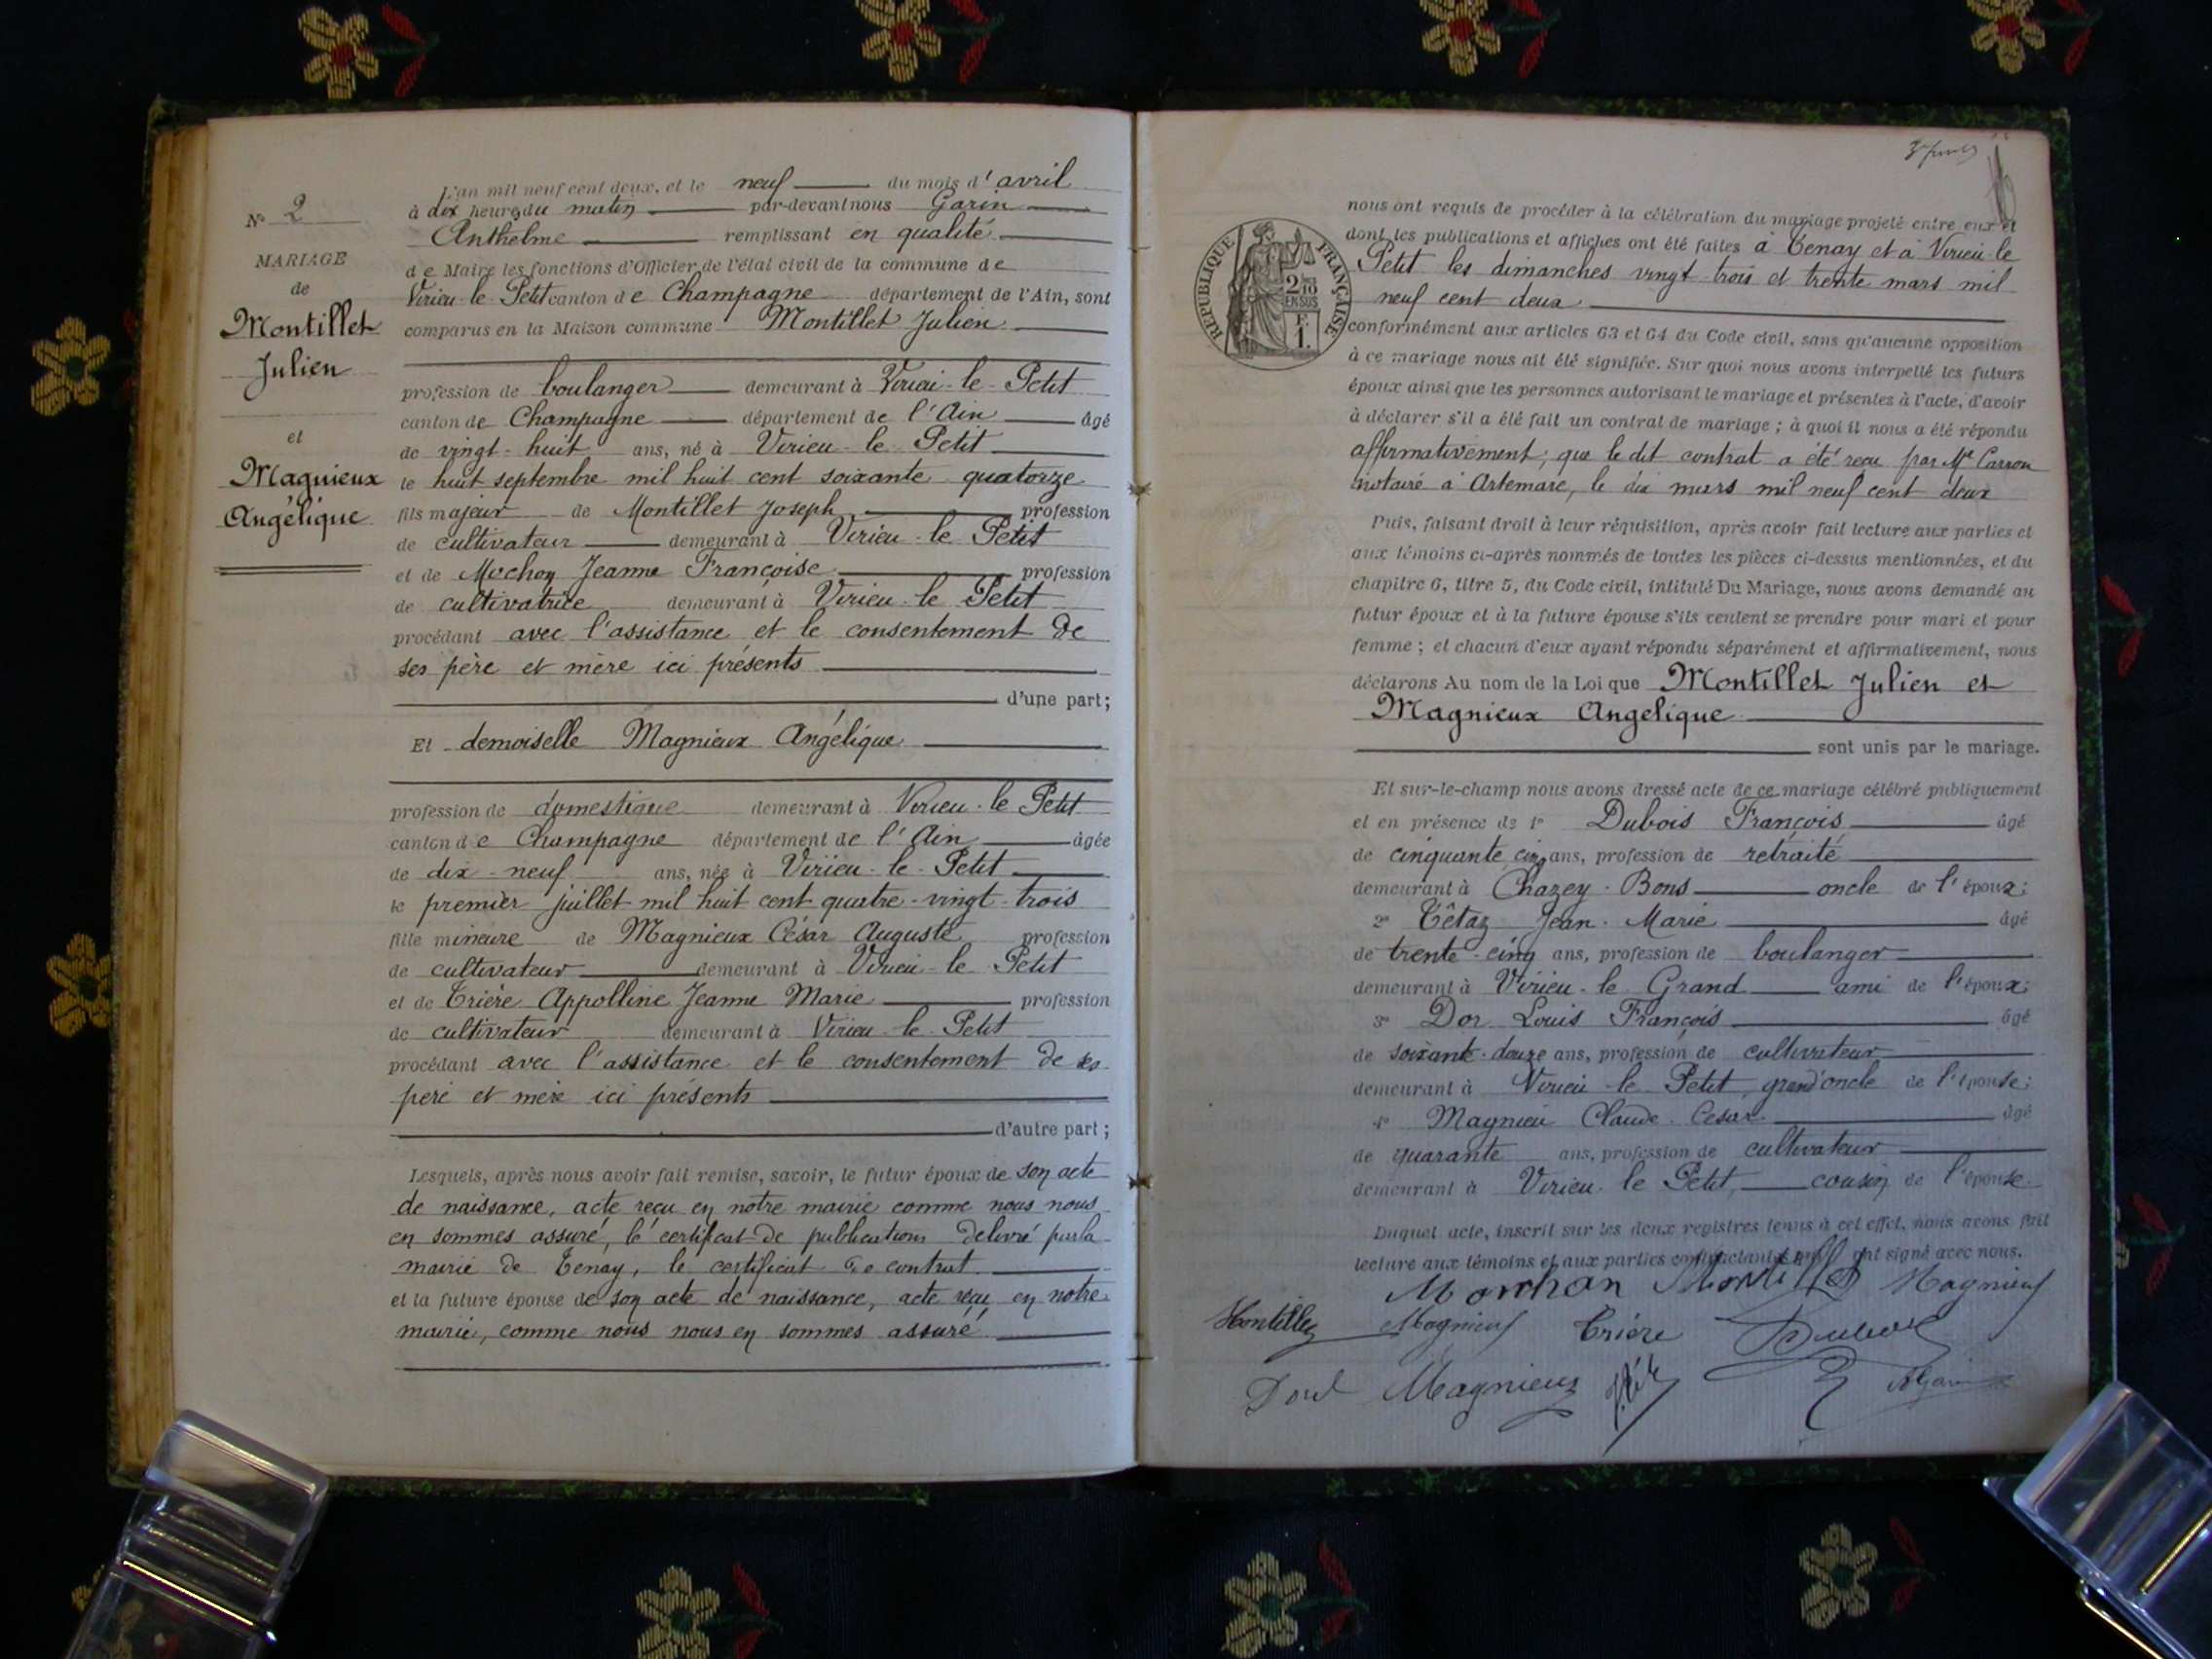 N° 2
MARIAGE
de
Montillet
Julien
et
Magnieux
Angélique
L'an mil neuf cent deux, et le neuf du mois d'avril
à dix heures du matin par-devant nous Garin
Anthelme remplissant en qualité
de Maire les fonctions d'Officier de l'état civil de la commune de
Virieu-le-Petit canton de Champagne département de l'Ain, sont
comparus en la Maison commune Montillet Julien
profession de boulanger demeurant à Virieu-le-Petit
canton de Champagne département de l'Ain âgé
de vingt-huit ans, né à Virieu-le-Petit
le huit septembre mil huit cent soixante quatorze
fils majeur de Montillet Joseph profession
de cultivateur demeurant à Virieu-le Petit
et de Mochon Jeanne Françoise profession
de cultivatrice demeurant à Virieu-le Petit
procédant avec l'assistance et le consentement de
ses père et mère ici présents
d'une part;
Et demoiselle Magnieux Angélique
profession de domestique demeurant à Virieu-le Petit
canton de Champagne département de l'Ain âgée
de dix-neuf ans, née à Virieu-le-Petit
le premier juillet mil huit cent quatre-vingt-trois
fille mineure de Magnieux César Auguste profession
de cultivateur demeurant à Virieu-le Petit
et de Trière Appolline Jeanne Marie profession
de cultivateur demeurant à Virieu-le-Petit
procédant avec l'assistance et le consentement de ses
père et mère ici présents
d'autre part;
Lesquels, après nous avoir fait remise, savoir, le futur époux de son acte
de naissance, acte reçu en notre mairie comme nous nous
en sommes assuré, le certificat de publications délivré par la
mairie de Tenay, le certificat de contrat
et la future épouse de son acte de naissance, acte reçu en notre
mairie, comme nous nous en sommes assuré
RÉPUBLIQUE FRANÇAISE
2/10
EN SUS
F.
1.
nous ont requis de procéder à la célébration du mariage projeté entre eux et
dont les publications et affiches ont été faites à Tenay et à Virieu-le
Petit les dimanches vingt-trois et trente mars mil
neuf cent deux
conformément aux articles 63 et 64 du Code civil, sans qu'aucune opposition
à ce mariage nous ait été signifiée. Sur quoi nous avons interpellé les futurs
époux ainsi que les personnes autorisant le mariage et présentes à l'acte, d'avoir
à déclarer s'il a été fait un contrat de mariage ; à quoi il nous a été répondu
affirmativement; que le dit contrat a été reçu par Me Carron
notaire à Artemare, le dix mars mil neuf cent deux
Puis, faisant droit à leur réquisition, après avoir fait lecture aux parties et
aux témoins ci-après nommés de toutes les pièces ci-dessus mentionnées, et du
chapitre 6, titre 5, du Code civil, intitulé Du Mariage, nous avons demandé au
futur époux et à la future épouse s'ils veulent se prendre pour mari et pour
femme ; et chacun d'eux ayant répondu séparément et affirmativement, nous
déclarons Au nom de la Loi que Montillet Julien et
Magnieux Angelique
sont unis par le mariage.
Et sur-le-champ nous avons dressé acte de ce mariage célébré publiquement
et en présence de 1° Dubois François âgé
de cinquante cinq ans, profession de retraité
demeurant à Chazey-Bons oncle de l'époux;
2° Têtaz Jean-Marie âgé
de trente-cinq ans, profession de boulanger
demeurant à Virieu-le Grand ami de l'époux;
3° Dor Louis François âgé
de soixante-douze ans, profession de cultivateur
demeurant à Virieu-le Petit, grand'oncle de l'épouse;
4° Magnieu Claude Cesar âgé
de quarante ans, profession de cultivateur
demeurant à Virieu-le Petit, cousin de l'épouse
Duquel acte, inscrit sur les deux registres tenus à cet effet, nous avons fait
lecture aux témoins et aux parties contractantes qui ont signé avec nous.
Montillet Magnieux
Montillet Magnieux Trière Dubois
Dorl Magnieux AGarin